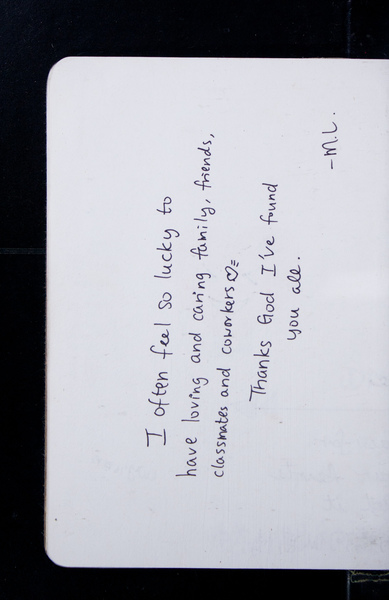 I often feel so lucky to
have loving and caring family, friends,
classmates and coworkers♡
Thanks God I've found
you all.
-M.L.